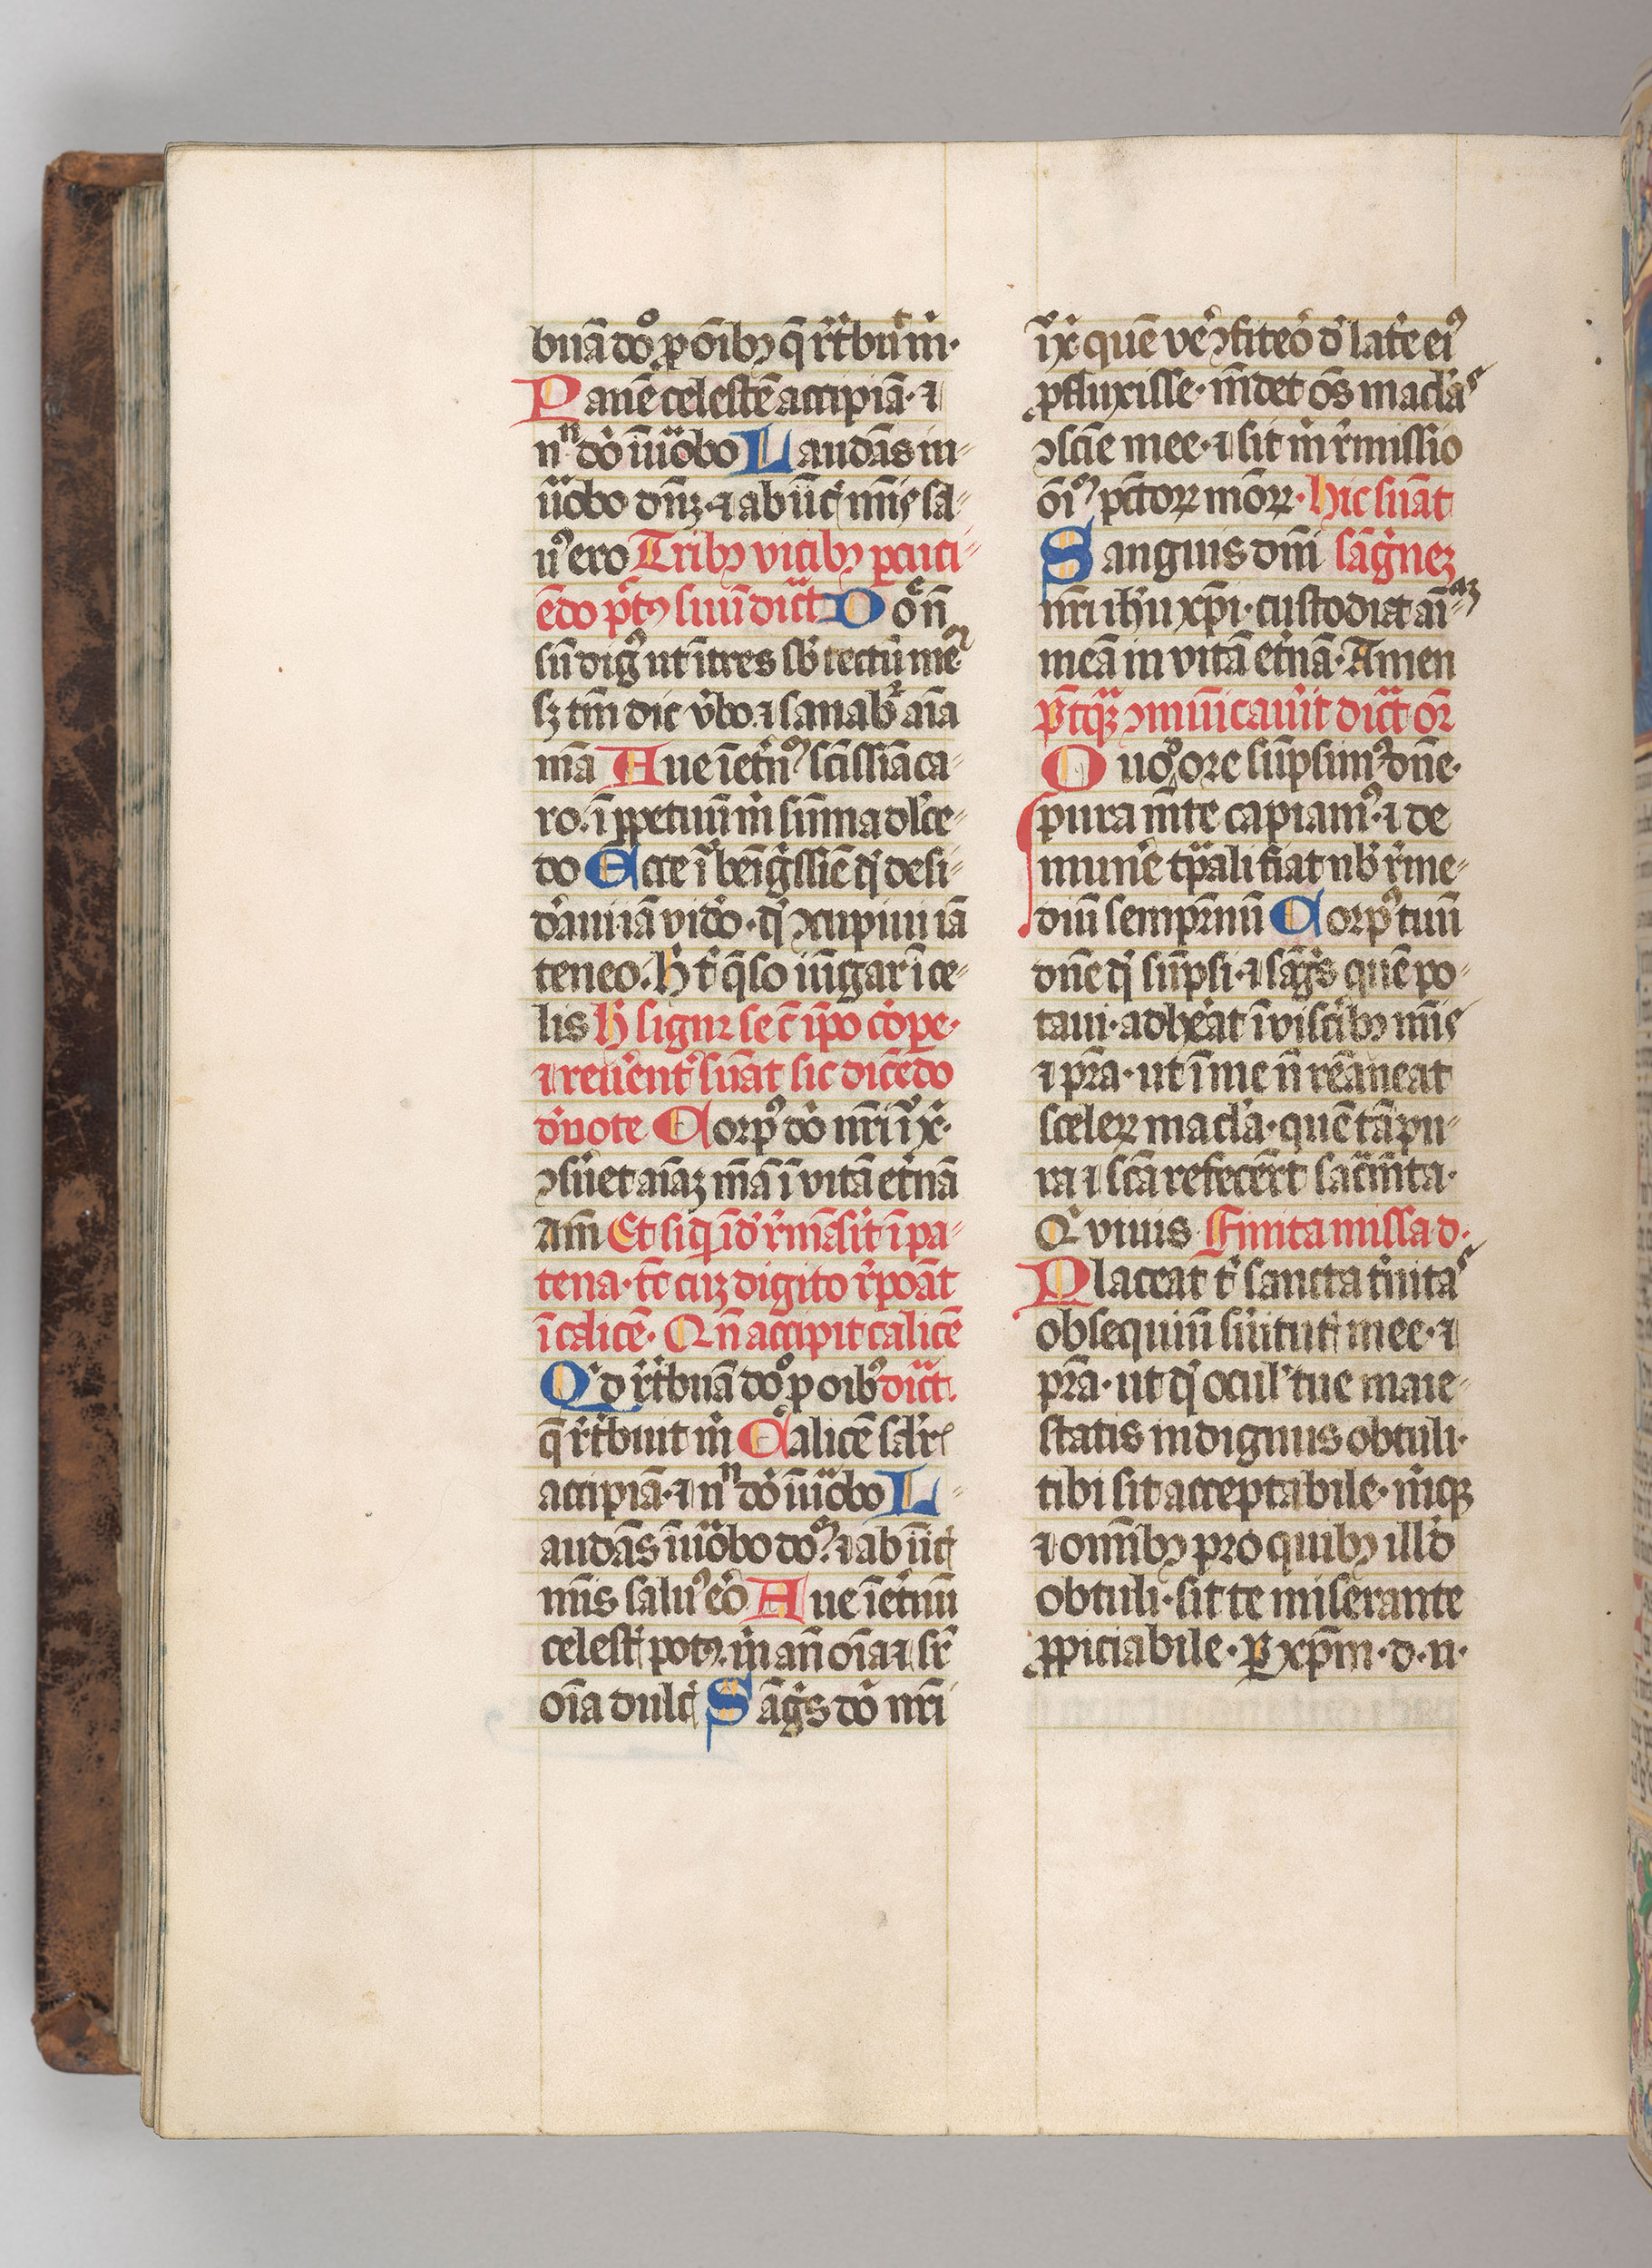 buā dōº ꝓ oībꝫ q̄ rͥtbuͥt m̄.
Panē celestē accipiā. ⁊
nⁿ dōͥ iuͣobo Laudās in-
uͣobo dn̄ꝫ. ⁊ ab iīcͥ mīs sa-
luꝰ ero Tribꝫ vicibꝫ ꝑcuci-
ēdo pͨtꝰ suū dicͣt Do n̄
sū dignꝰ ut ītres sb̄ tectū meū
sꝫ tm̄ dic vͦbo. ⁊ sanabͬ aīa
mā Aue ī etͬnꝰ scīssīa ca-
ro. ī ꝑpetuū mͥ sūma dlͨce-
do Ecce iͣ benigͥssīe qͥ desi-
dͨaui iā videoͦ. qͥ ↄcupiui iā
teneo. Hͥ tͥ q̄so iūgar ī ce-
lis Hͥ signͬ se c̄ ip̄o cͦrpe.
⁊ reuͨentͬ sūat sic dicēdo
dͨuote Corpꝰ dōͥ nrī iͪꝰ xͥ.
ↄsuͬet aīaꝫ mā ī vitā etͬnā
Am̄ Et si qͥd rͨmāsͥit ī pa-
tena. tͨ cuꝫ digito rͨpōat
ī calicē. Qn̄ accipit calicē
Qͥd rͥtbuā dōº ꝓ oībꝰ dicͣt
q̄ rͥtbuit mͥ Calicē salrͥs
accipiā. ⁊ nⁿ dōͥ iuͣobo L-
audās īuͣobo dōꝫ. ⁊ ab iīcͥ
mīs saluꝰ eͬo Aue ī etͬnū
celestͥ potꝰ. mͥ an̄ oīa ⁊ sͬ
oīa dulcͥ Sāgͥs dōͥ nrī
iͪꝰ xͥ. quē veͬ ↄfiteoͬ dͨ latͬe eiꝰ
ꝓfluxisse. mūdet oēs maclͣas
ↄscīe mee. ⁊ sit mͥ rͨmissio
oīꝫ pctoꝝ meoꝝ. Hic sūat
Sanguis dn̄i sāgͥneꝫ
nr̄i ih̄u xp̄i. custodiat aīaꝫ
meā in vitā etͬnā. Amen
Pͭqͣꝫ ↄmūicauͬit dicͣt or̄
Quoͩ ore sūpsimꝰ dn̄e.
pura mn̄te capiamꝰ. ⁊ de
munͬe tp̄ali fiat nbͥ rͨme-
diū sempitͬnū Corpꝰ tuū
dn̄e qͩ sūpsi. ⁊ sāgͥs quē po-
taui. adhͬeat ī viscͬibꝫ mēis
⁊ p̄ra. ut ī me n̄ remāneat
sceleꝝ maclͣa. quē tā pu-
ra ⁊ scā refecerͨt sacͣm̄ta.
Qͥ viuis Finita missa d.
Placeat tͥ sancta tͥnitas
obsequiū sͬuitutͥ mee. ⁊
p̄ra. ut qͩ oculͥ tue maie-
statis indignus obtuli.
tibi sit acceptabile. mͥcqꝫ
⁊ omībꝫ pro quibꝫ illͩ
obtuli. sit te miserante
ꝓpiciabile. Ꝑ xp̄m. d. n.